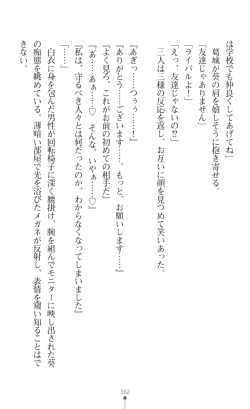 は学校でも仲良くしてあげてね」
　葛城が葵の肩を嬉しそうに抱き寄せる。
「友達じゃありません」
「ライバルよ！」
「えっ、友達じゃないの!?」
　三人は三様の反応を返し、お互いに顔を見つめて笑いあった。
『あぎっ……つぅぅ……！
『ありがとう……ございます……。もっと、お願いします……』
『よく見ろ、これがお前の初めての相手だ』
『あ……あぁ……♡　そんな、いやぁ……♡』
『私は、守るべき人々とは何だったのか、わからなくなってしまいました』
「……」
　白衣に身を包んだ男性が回転椅子に深く腰掛け、腕を組んでモニターに映し出された葵
の痴態を眺めている。薄暗い部屋で光を浴びたメガネが反射し、表情を窺い知ることはで
きない。
362